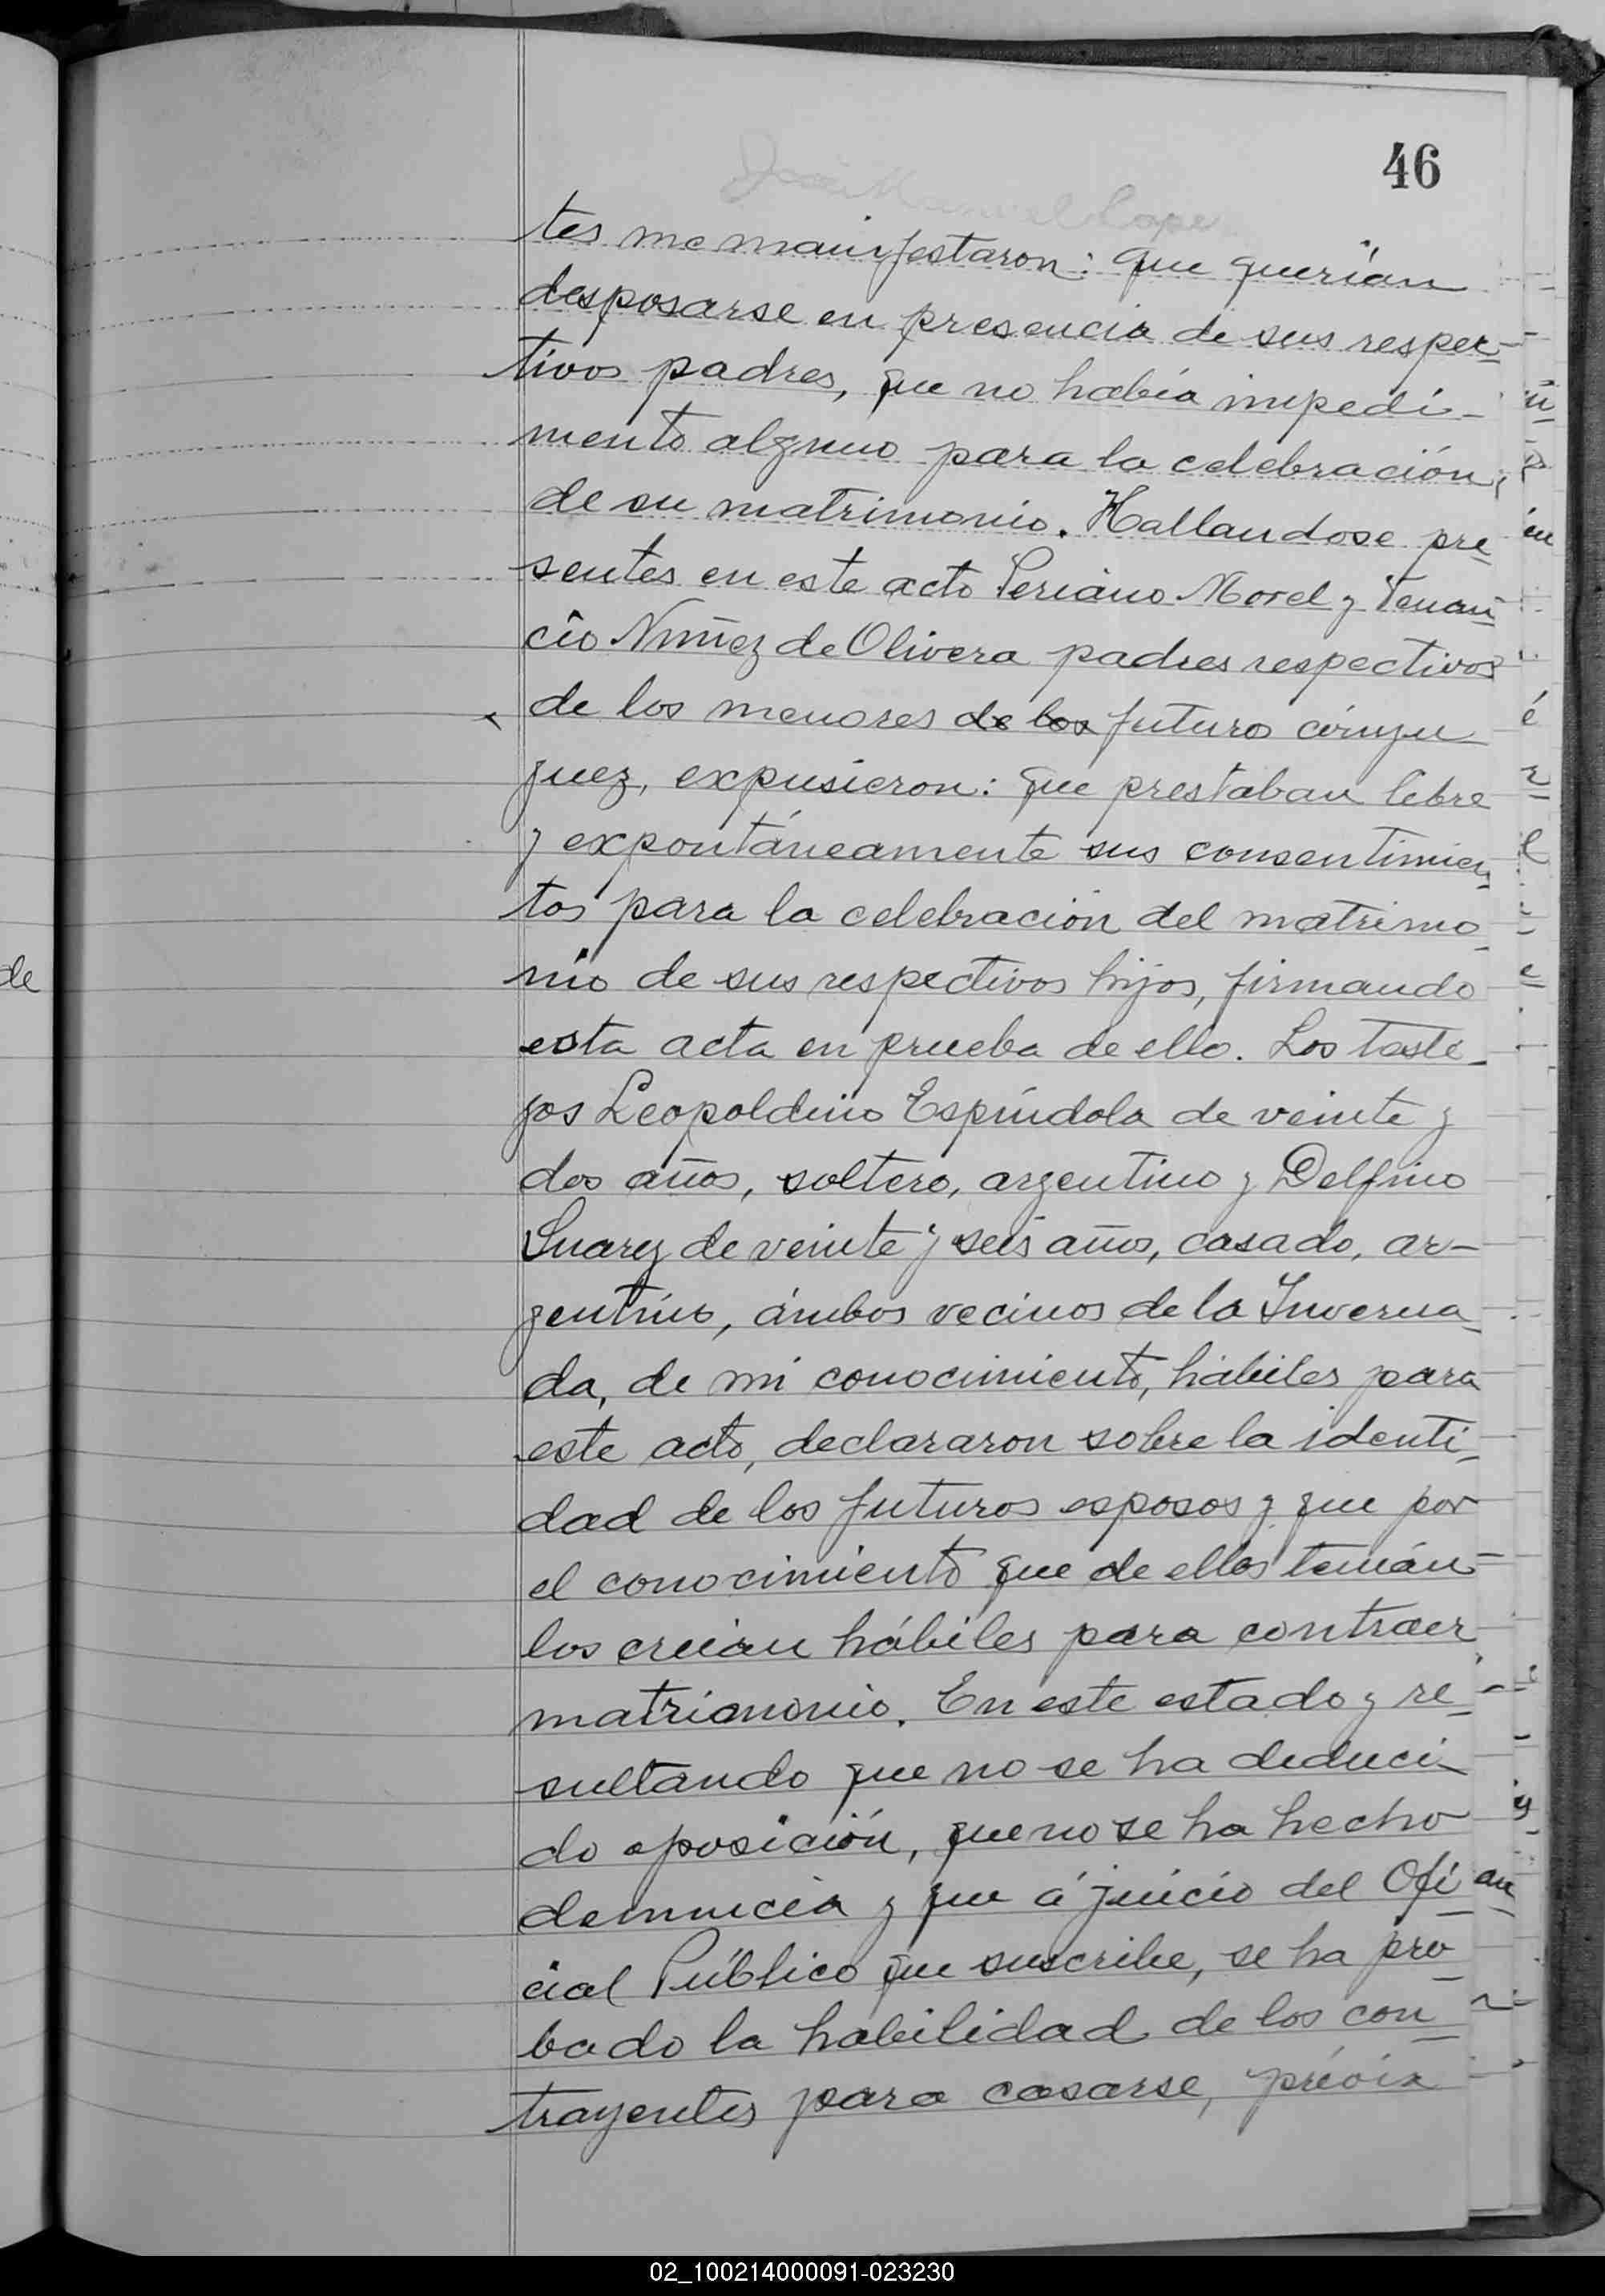 46
tes me manifestaron: que querían
desposarse en presencia de sus respec-
tivos padres, que no había impedi-
mento alguno para la celebración
de su matrimonio. Hallandose pre
sentes en este acto Periano Morel y Venan
cio Nuñez de Olivera padres respectivos
de los menores de los futuro cónyu
guez, expusieron: que prestaban libre
y expontáneamente sus consentimien
tos para la celebración del matrimo
nio de sus respectivos hijos, firmando
esta acta en prueba de ello. Los teste-
gos Leopoldino Espíndola de veinte y
dos años, soltero, argentino y Delfino
Suarez de veinte y seis años, casado, ar-
gentino, ámbos vecinos de la Inverna
da, de mi conocimiento, hábiles para
este acto, declararon sobre la identi
dad de los futuros esposos y que por
el conocimiento que de ellos tenían
los creian hábiles para contraer
matrimonio. En este estado y re
sultando que no se ha deduci
do oposición, que no se ha hecho
denuncia y que á juicio del Ofi
cial Público que suscribe, se ha pro
bado la habilidad de los con
trayentes para casarse, prévia
de
02_100214000091-023230